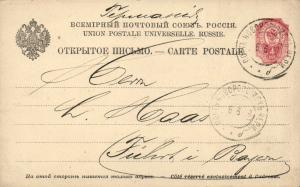 Германія
ВСЕМІРНЫЙ ПОЧТОВЫЙ СОЮЗЪ. РОССІЯ.
UNION POSTALE UNIVERSELLE. RUSSIE.
ОТКРЫТОЕ ПИСЬМО. — CARTE POSTALE.
Herrn
L. Haas
Fürth i. Bayern
На этой сторонѣ пишется только адресъ. — Côté réservé exclusivement à l'adresse.